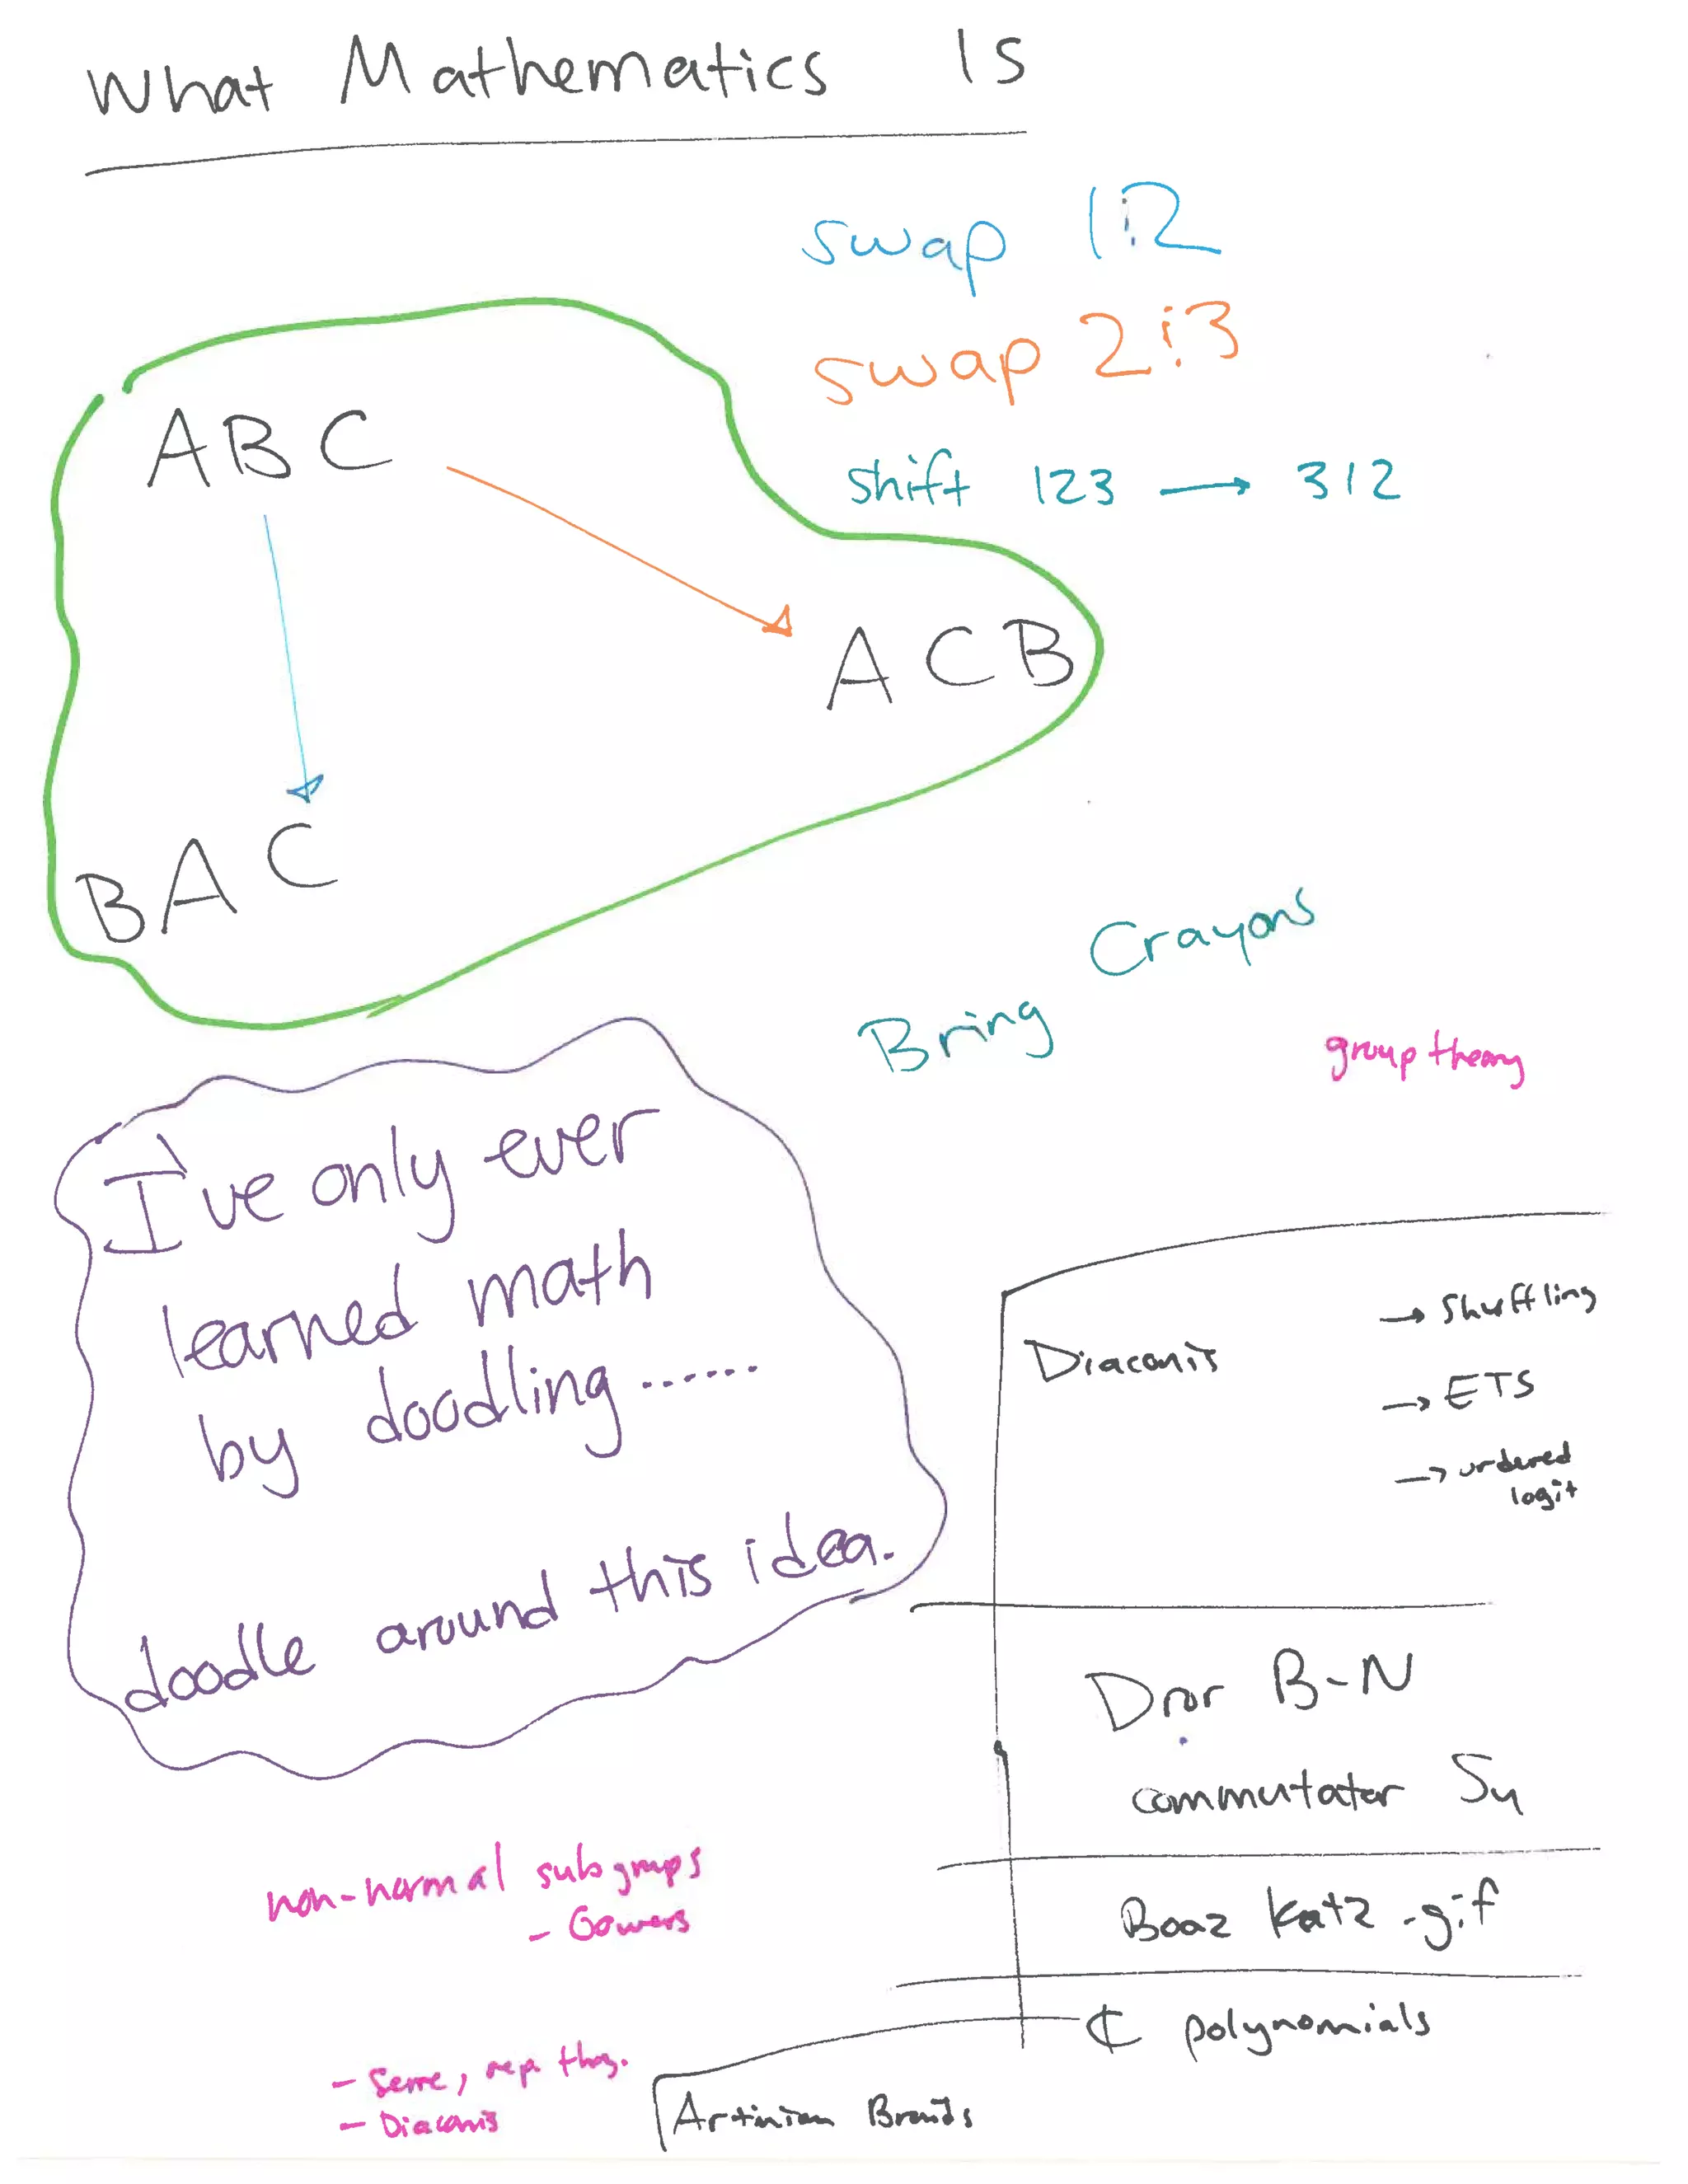 What Mathematics Is
swap 1:2
swap 2:3
shift 123 → 312
ABC
ACB
BAC
Crayons
Bring
group theory
I've only ever
learned math
by doodling......
doodle around this idea.
Diaconis
→ Shuffling
→ ETS
→ ordered
logit
Dror B-N
commutator
Boaz Katz .gif
ℂ polynomials
non-normal subgroups
- Gowers
- Serre, rep. thy.
- Diaconis
Artinian Braids